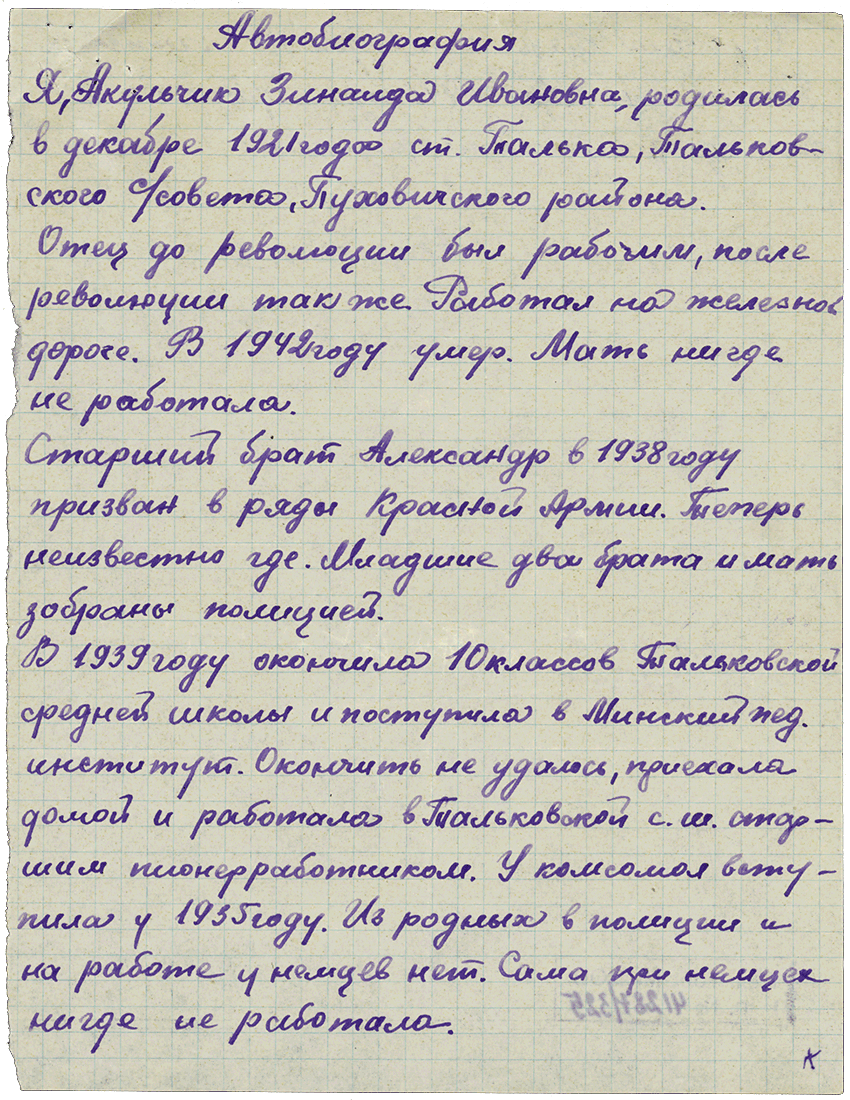 Автобиография
Я, Акульчик Зинаида Ивановна, родилась
в декабре 1921 года ст. Талька, Тальков-
ского с/совета, Пуховичского района.
Отец до революции был рабочим, после
революции также. Работал на железной
дороге. В 1942 году умер. Мать нигде
не работала.
Старший брат Александр в 1938 году
призван в ряды Красной Армии. Теперь
неизвестно где. Младшие два брата и мать
забраны полицией.
В 1939 году окончила 10 классов Тальковской
средней школы и поступила в Минский пед.
институт. Окончить не удалось, приехала
домой и работала в Тальковской с. ш. стар-
шим пионерработником. У комсомол всту-
пила у 1935 году. Из родных в полиции и
на работе у немцев нет. Сама при немцах
нигде не работала.
41287/325